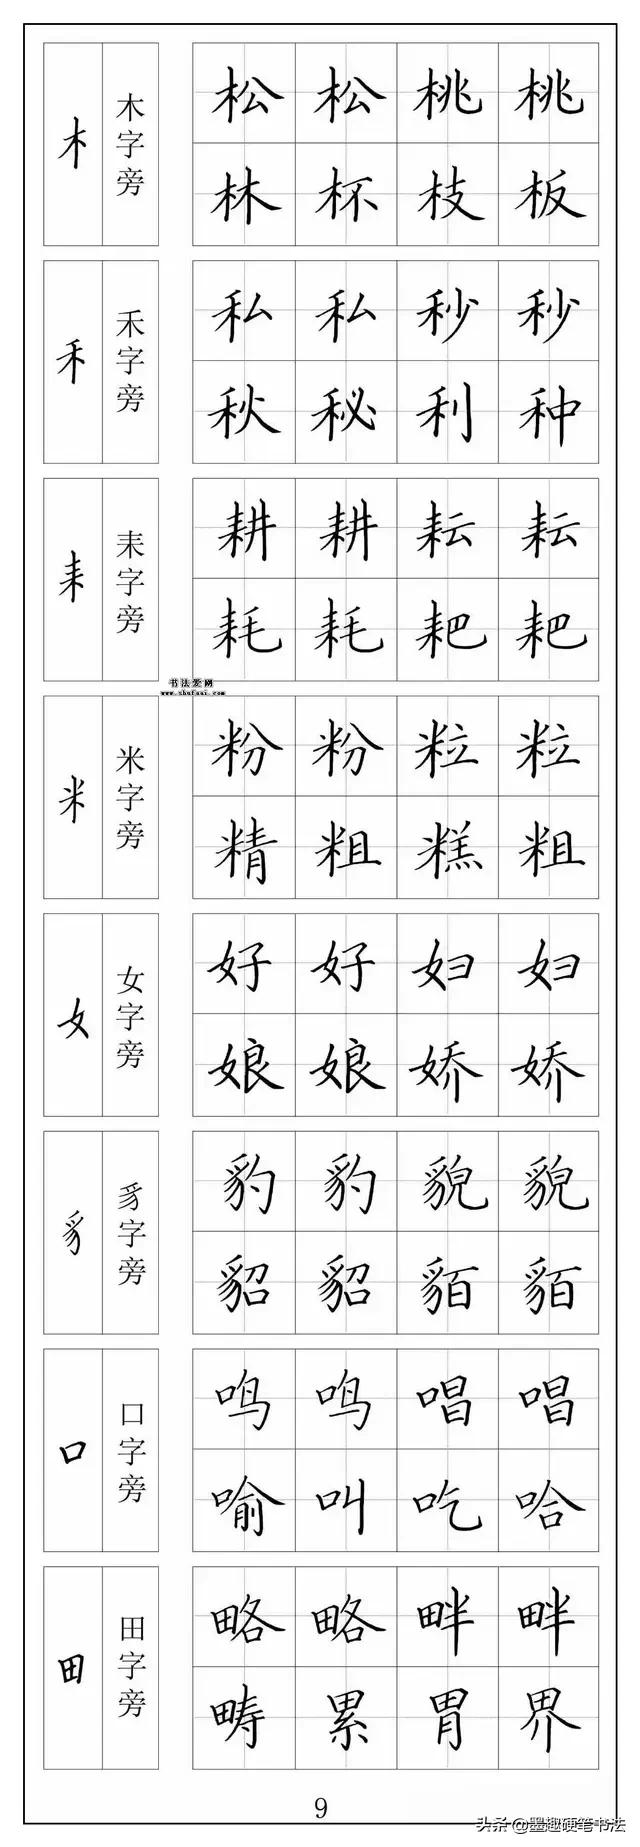 木 木字旁 松 松 桃 桃
林 杯 枝 板
禾 禾字旁 私 私 秒 秒
秋 秘 利 种
耒 耒字旁 耕 耕 耘 耘
耗 耗 耙 耙
书法爱网
www.shufaai.com
米 米字旁 粉 粉 粒 粒
精 粗 糕 粗
女 女字旁 好 好 妇 妇
娘 娘 娇 娇
豸 豸字旁 豹 豹 貌 貌
貂 貂 貊 貊
口 口字旁 鸣 鸣 唱 唱
喻 叫 吃 哈
田 田字旁 略 略 畔 畔
畴 累 胃 界
9
头条 @墨趣硬笔书法